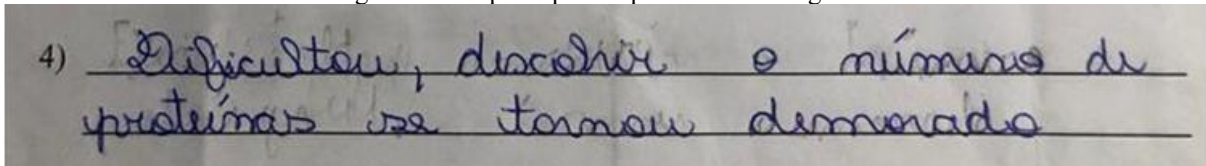 4) Dificultou, discobrir o número de
proteínas se tornou demorado